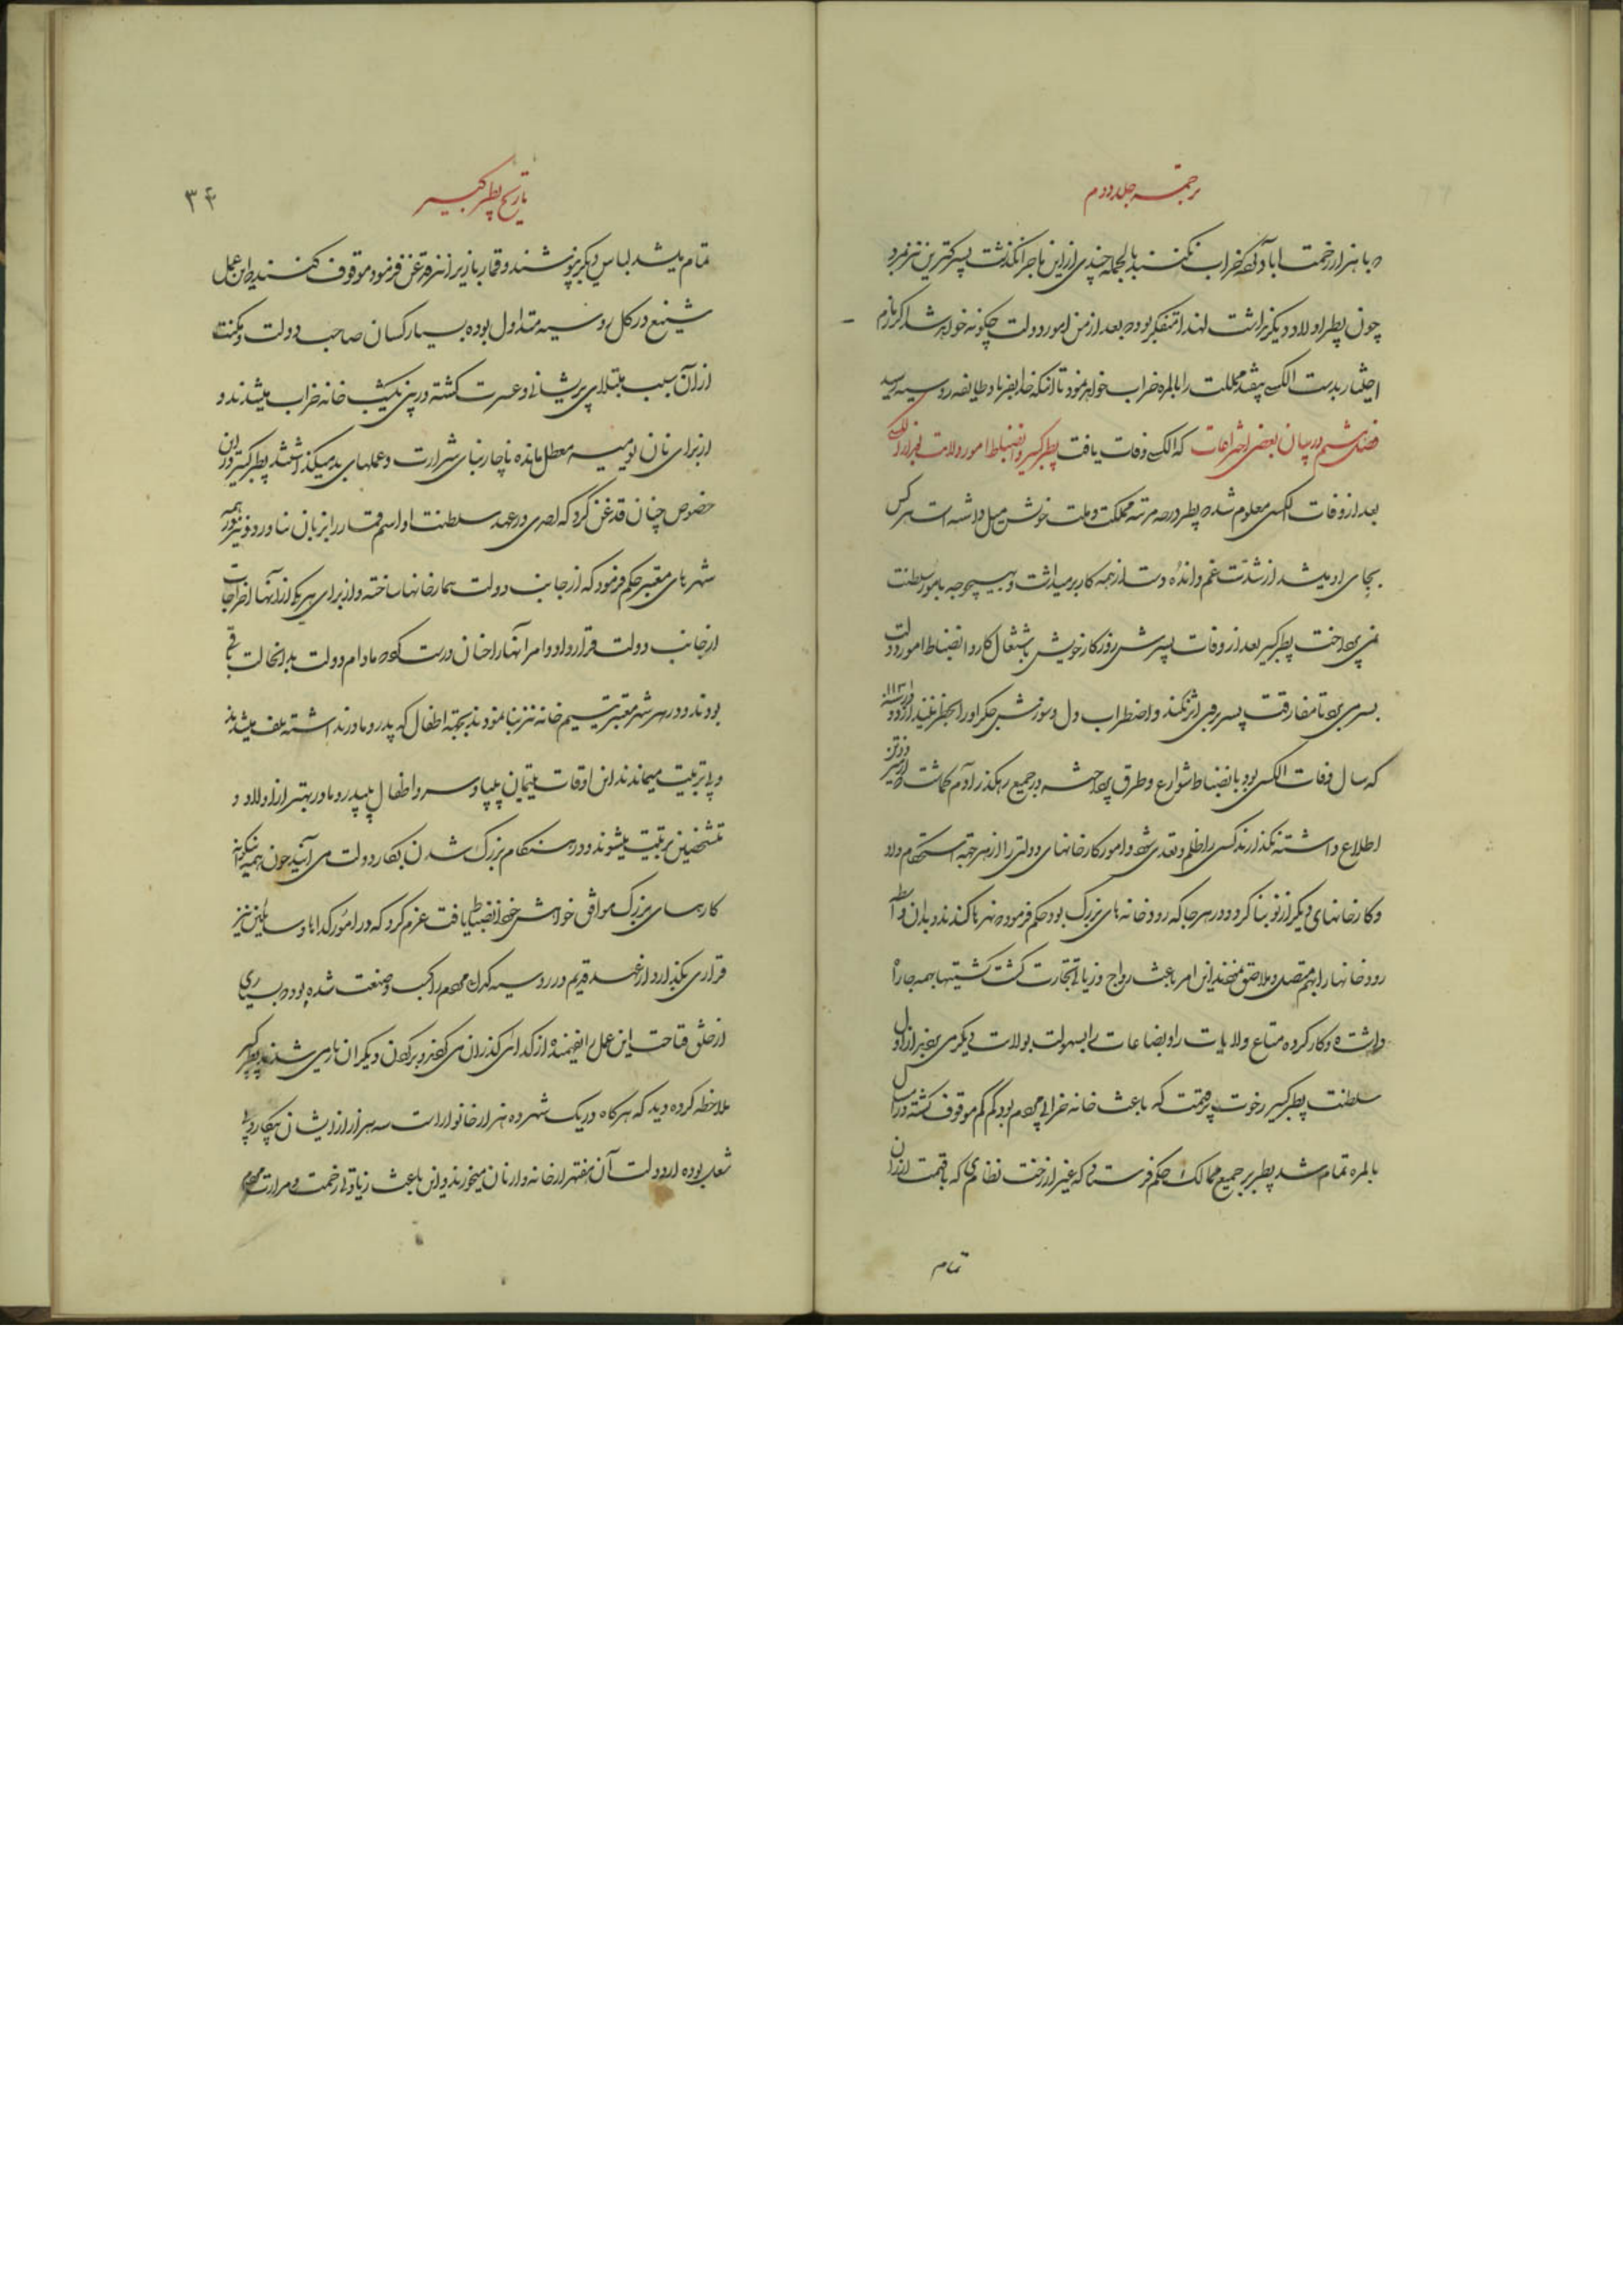 ترجمه جلد دوم
که با هزار زحمت آباد کرده خراب نکند بالجمله چندی از این ماجرا نگذشت پسر کترین نیز بمرد
چون پطر اولاد دیگر نداشت لهذا متفکر بود که بعد از من امور دولت چگونه خواهد شد اگر بازم
اختیار بدست الکسی بیفتد مملکت را بالمره خراب خواهد نمود تا آنکه خدا بفریاد طایفه روسیه رسید
فصل ششم در بیان بعضی اختراعات که الکسی وفات یافت پطر کبیر و انضباط امور ولایت
بعد از وفات الکسی معلوم شد که پطر در چه مرتبه بمملکت و ملت خویش میل داشته است هر کس
بجای او میشد از شدت غم و اندوه دست از همه کار برمیداشت و بهیچوجه بامور سلطنت
نمی پرداخت پطر کبیر بعد از وفات پسرش روز کار خویش باشتغال کار و انضباط امور دولت
بسر می برد تا مفارقت پسر بر وی اثر نکند و اضطراب دل و سوزش جگر او را
که سال وفات الکسی بود بانضباط شوارع و طرق پرداخته در جمیع رهگذر آدم گماشت که
اطلاع داشته نگذارند کسی را ظلم و تعدی شود و امور کارخانهای دولتی را از هر جهة استحکام داد
و کارخانهای دیگر از نو بنا کرد و در هر جا که رودخانه های بزرگ بود حکم فرمود که نهرها کندند و بدان واسطه
رودخانها را بهم متصل و ملاحق نمودند این امر باعث رواج و زیادتی تجارت گشت کشتیها بهمه جا راه
داشته و کار کرده متاع ولایات را و بضاعات را بسهولت بولایت دیگر می بردند از اول
سلطنت پطر کبیر رخوت پر قیمت که باعث خانه خرابی مردم بود کم کم موقوف گشته در این سال
بالمره تمام شد پطر بر جمیع ممالک حکم فرستاد که غیر از رخت نظامی که با قیمت ارزان
تمام
تاریخ پطر کبیر
۳۴
تمام میشد لباس دیگر نپوشند و قمار بازی را نیز قدغن فرمود موقوف کنند این عمل
شنیع در کل روسیه متداول بوده بسیار کسان صاحب دولت و مکنت
از آن سبب مبتلای پریشانی و عسرت گشته در پی یکشب خانه خراب میشدند و
از برای نان یومیه معطل مانده ناچار بنای شرارت و عملهای بد میگذاشتند پطر کبیر در این
خصوص چنان قدغن کرد که احدی در عهد سلطنت او اسم قمار را بزبان نیاورد و نیز در همه
شهرهای معتبر حکم فرمود که از جانب دولت بیمارخانها ساخته و از برای هر یک از آنها اخراجات
از جانب دولت قرارداد و امر آنها را چنان درست کرد که مادام دولت بدانحالت باقی
بودند و در هر شهر معتبر یتیم خانه نیز بنا نمودند بجهة اطفال که پدر و مادر نداشته تلف میشدند
و بی تربیت میماندند این اوقات یتیمان بی پا و سر و اطفال بی پدر و مادر بهتر از اولاد و
متشخصین تربیت میشوند و در هنگام بزرگ شدن بکار دولت می آیند چون همه اینگونه
کارهای بزرگ موافق خواهش خود انضباط یافت عزم کرد که در امور گدایان و سایلین نیز
قراری بگذارد از عهد قدیم در روسیه گدائی مردم را کسب و صنعت شده بود و بسیاری
از خلق قباحت این عمل را نفهمیده از گدائی گذران می کردند و بر گردن دیگران بار می شدند پطر کبیر
ملاحظه کرده دید که هرگاه در یک شهر ده هزار خانوار است سه هزار از ایشان بیکار و بی
شغل بوده از دولت آن هفتهزار خانه وار نان میخورند و این باعث زیادتی زحمت و مرارت مردم